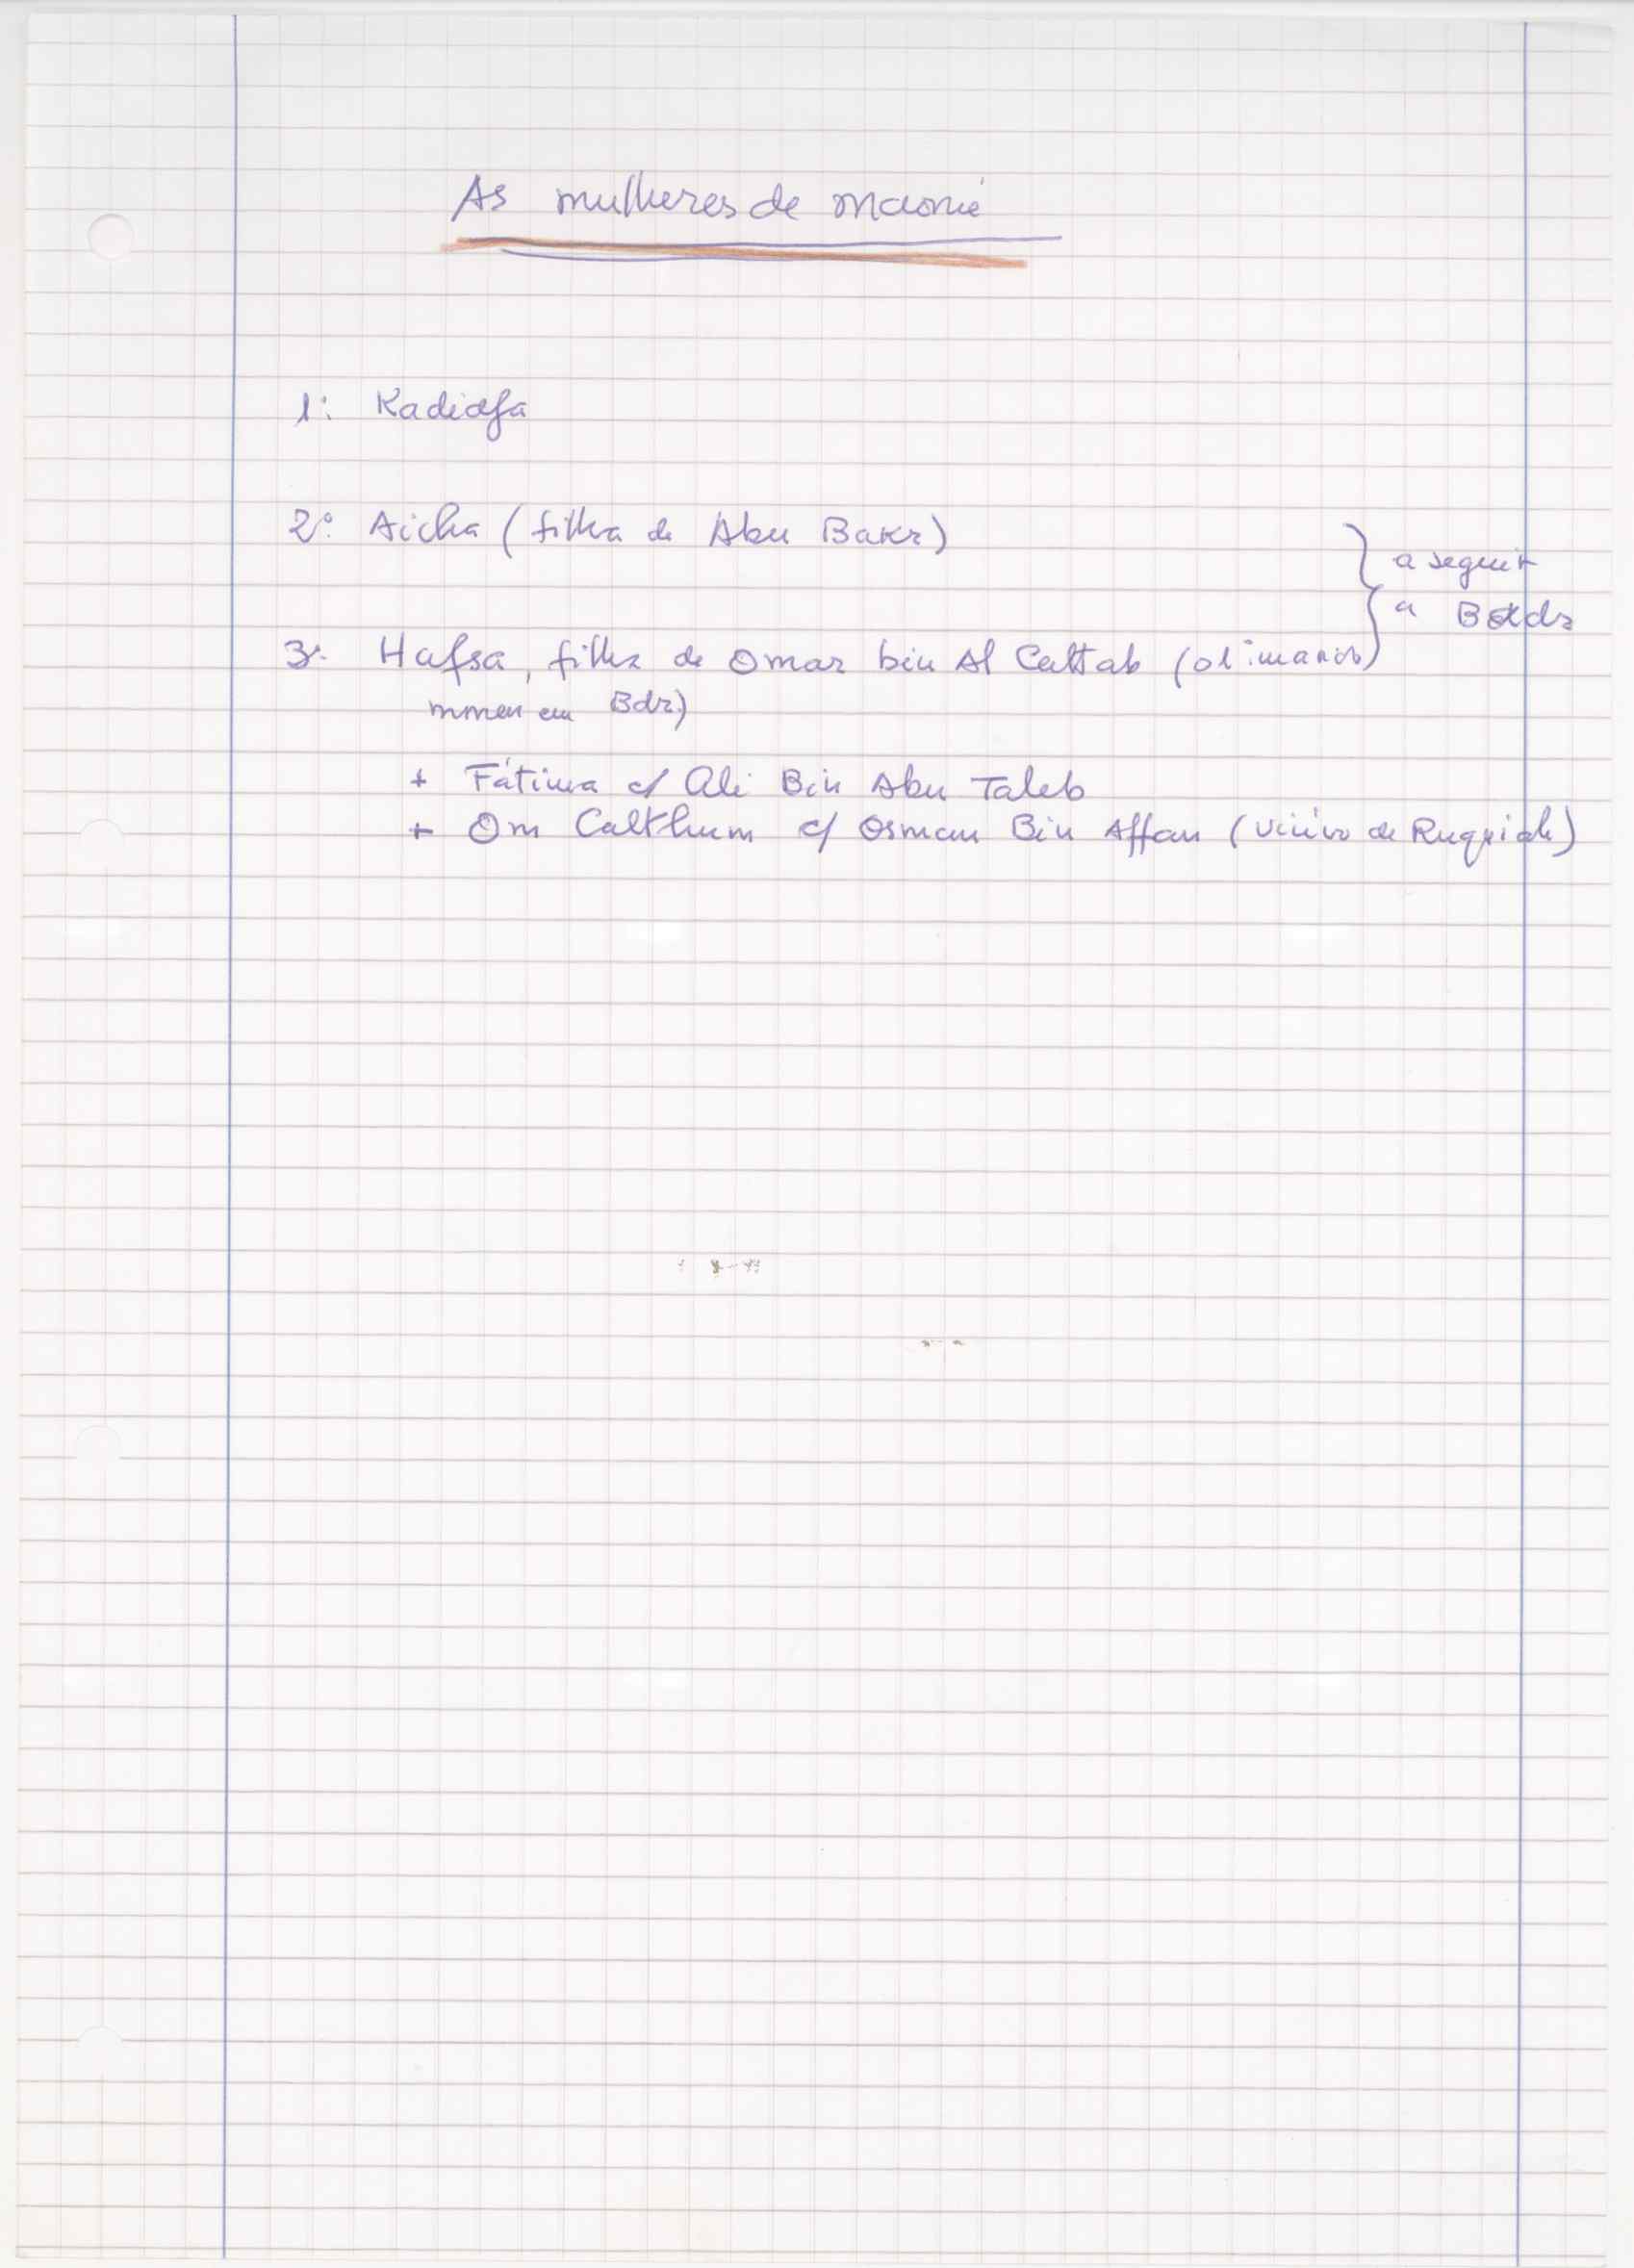 As mulheres de maomé
1ª: Kadidja
2ª: Aicha (filha de Abu Bakr)
a seguir
a Bdr
3ª Hafsa, filha de Omar bin Al Cattab (o 1º marido
morreu em Bdr)
+ Fátima c/ Ali Bin Abu Taleb
+ Om Calthum c/ Osman Bin Affan (viúvo de Ruqqiah)